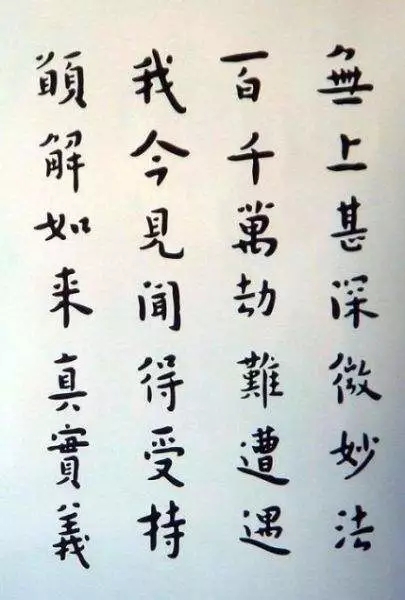 無上甚深微妙法
百千萬劫難遭遇
我今見聞得受持
願解如来真實義